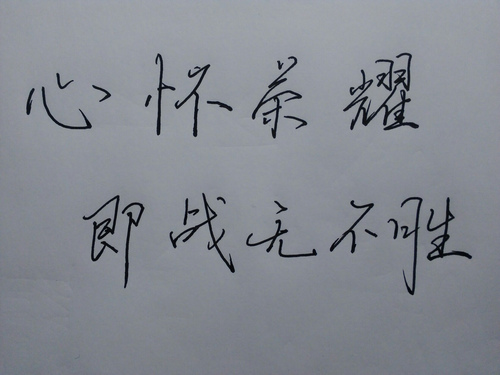 心怀荣耀
即战无不胜